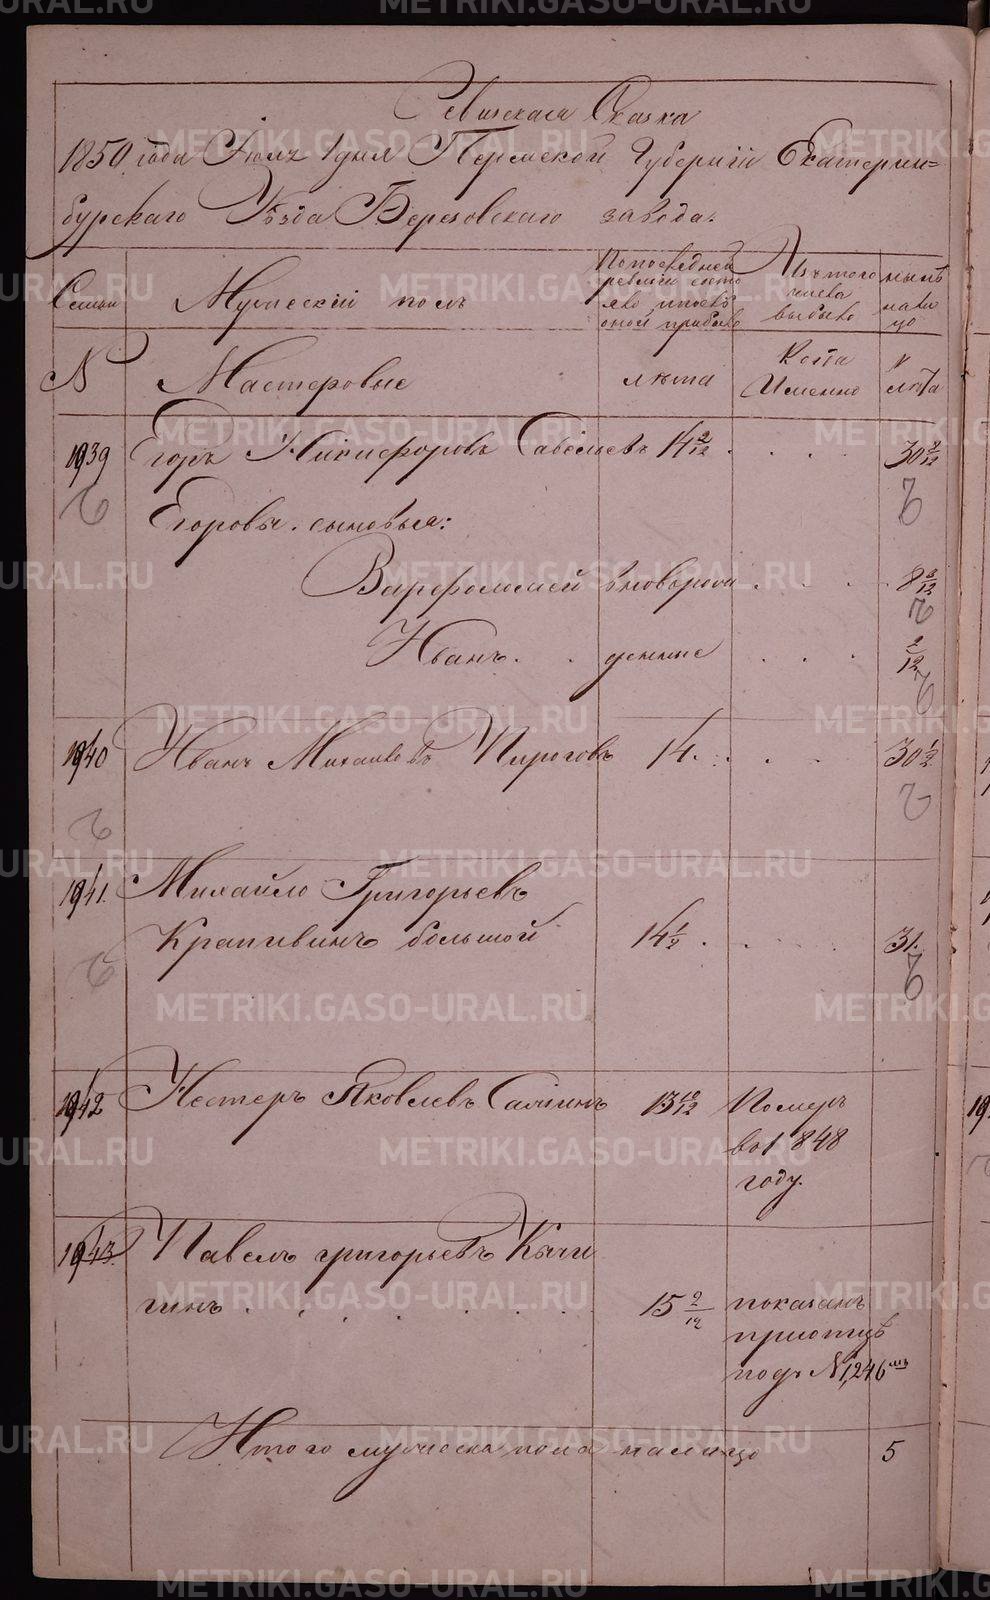 Ревизская Сказка
1850 года Июля 1 дня Пермской Губернии Екатерин=
бургскаго Уѣзда Березовскаго завода.
Семьи
Мужескій полъ
По последней
ревизіи состо
яло, и после
оной прибыло
Изъ того
числа
выбыло
нынѣ
нали
цо
N
Мастеровые
лѣта
Когда
Именно
лѣта
1939
Егоръ Никифоровъ Савельевъ 14 2/12 . . . . 30 8/12
Егоровы . сыновья:
Варфоломей вновьрож . . . . 8 8/12
Иванъ . . денные . . . 2/12
1940 Иванъ Михаиловъ Пироговъ 14 . . . . 30 1/2
1941. Михайло Григорьевъ
Крапивинъ большой 14 1/2 . . . . 31.
1942 Нестеръ Яковлевъ 13 10/12 Померъ
во 1848
году.
1943. Павелъ григорьевъ Кычи
гинъ . . . . . . . 15 2/12 показанъ
приотцѣ
подъ N 1,246 мъ
Итого мужеска пола налицо 5
METRIKI.GASO-URAL.RU